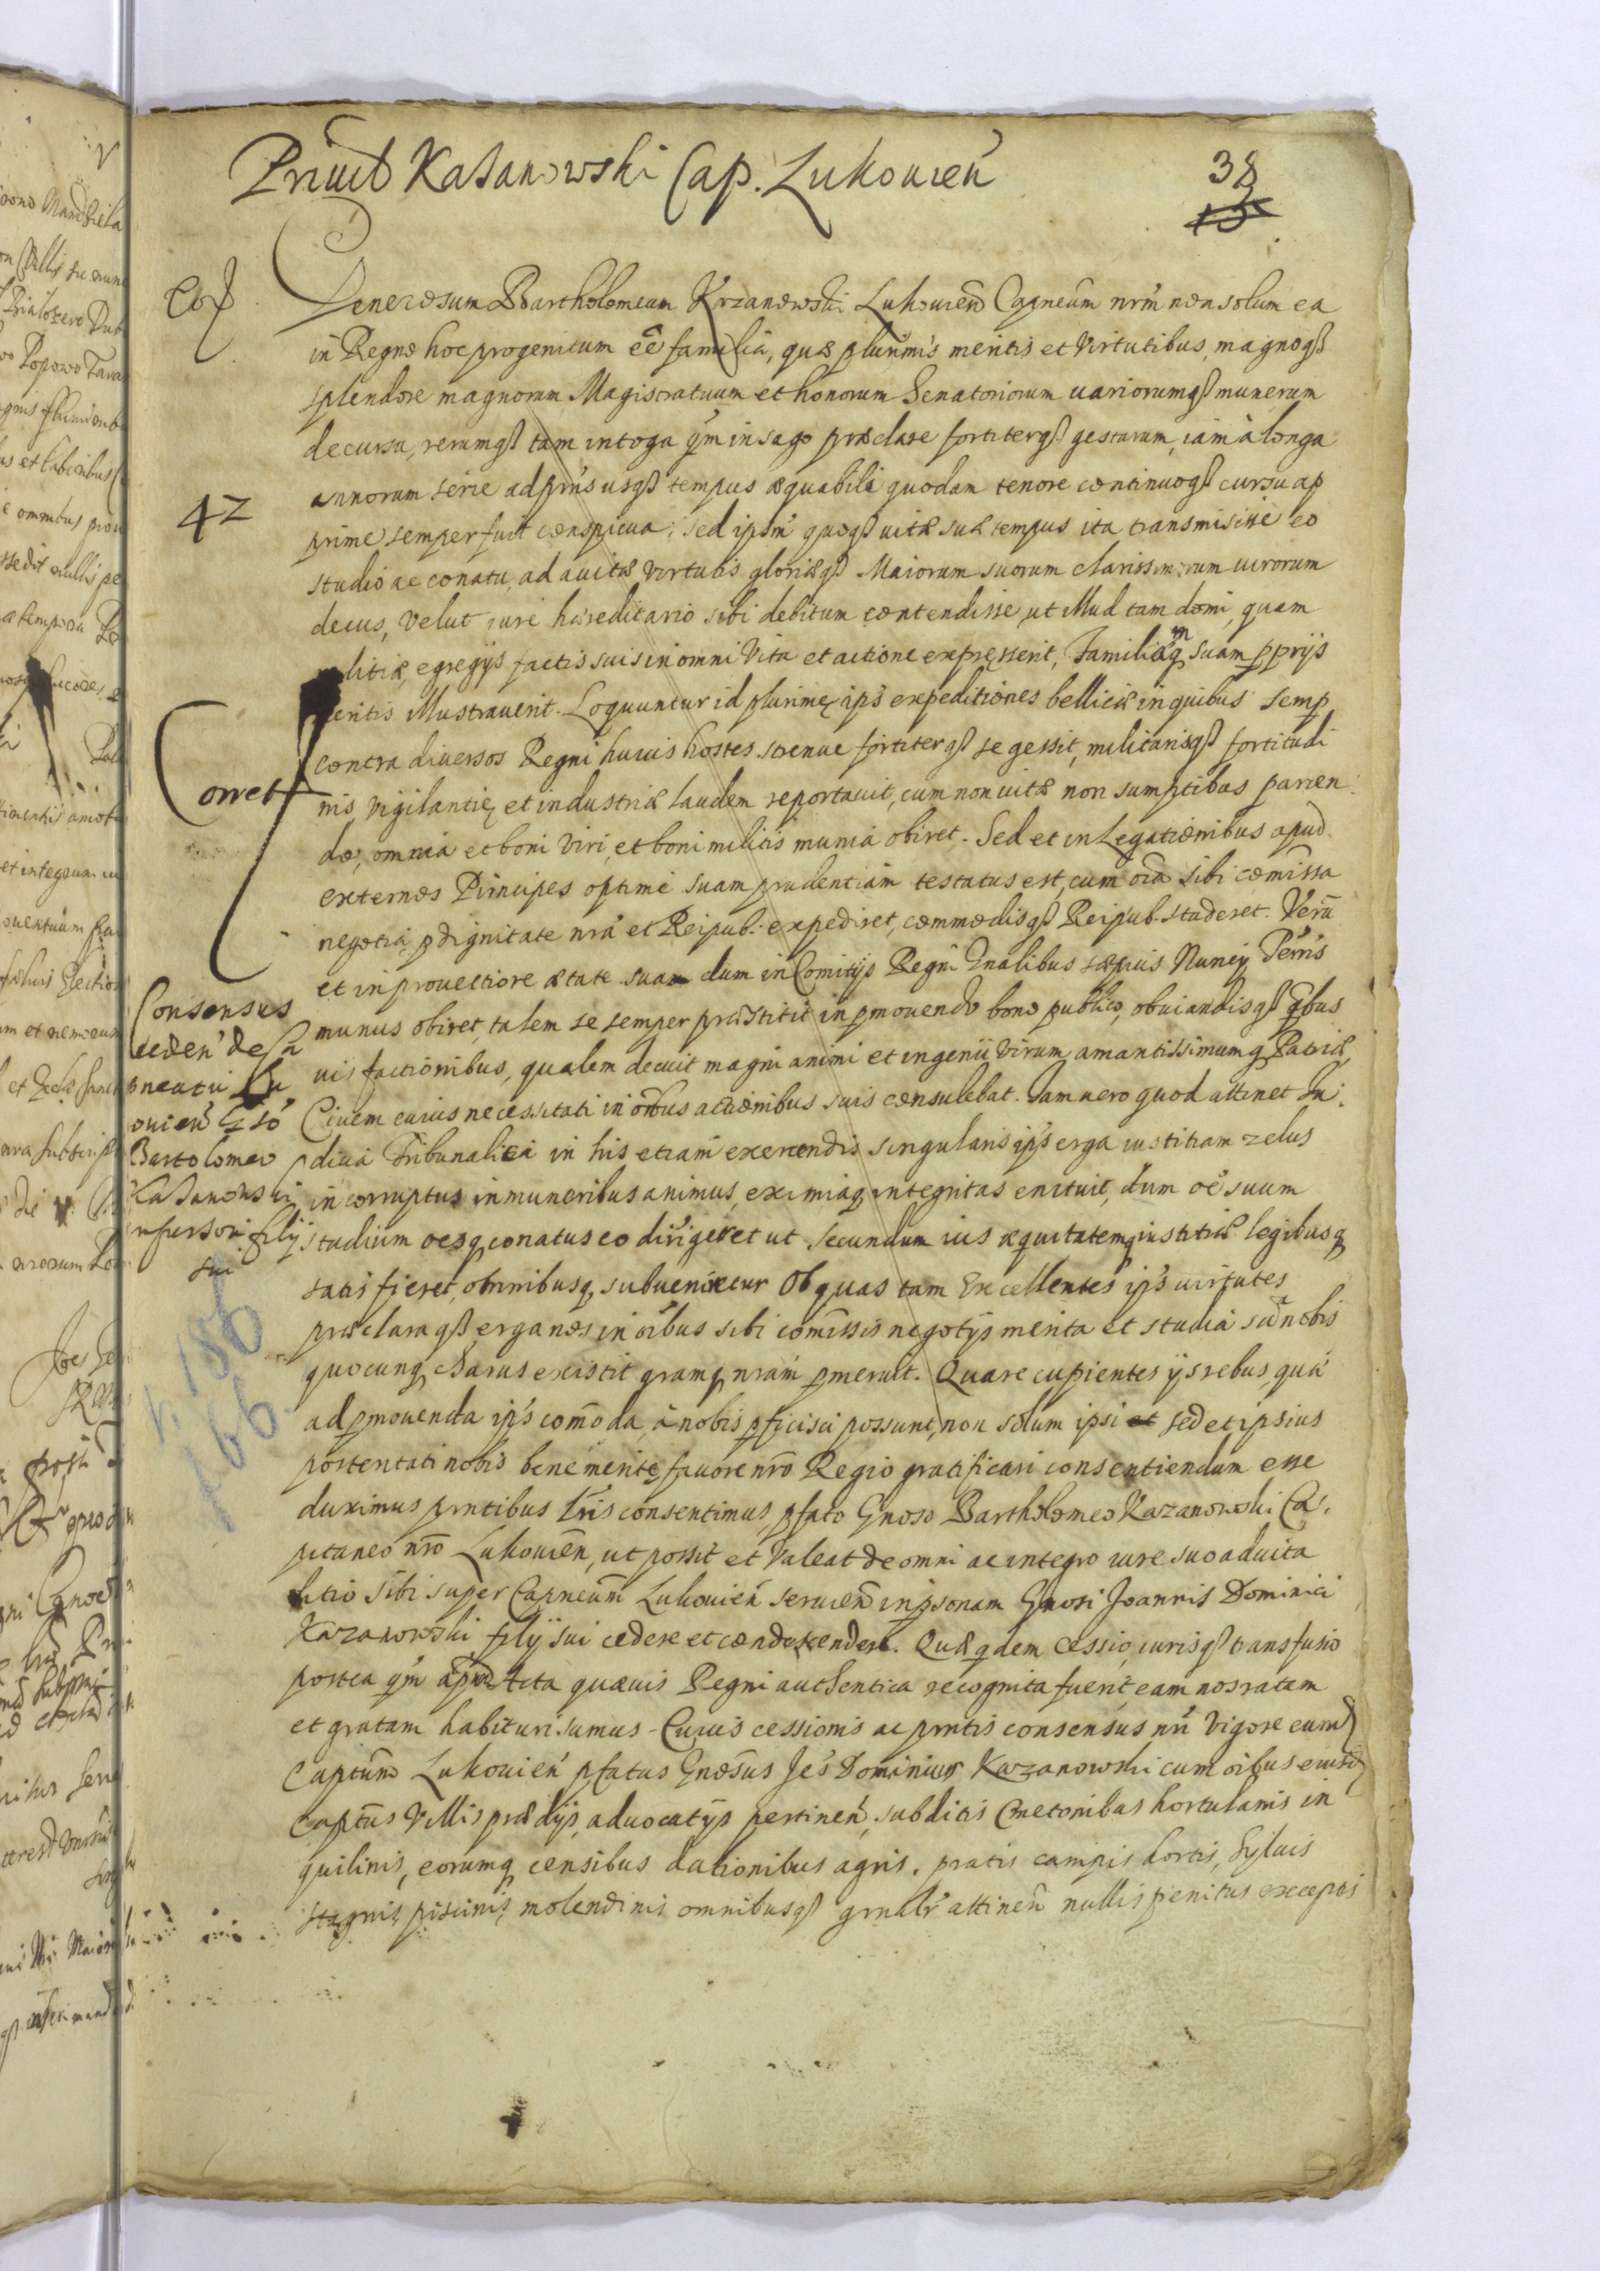 Priuil Kasanowski Cap. Lukouień
38
15
Cof
Generosum Bartholomeum Krzanowski Lukouień Capneum nrm non solum ea
in Regno hoc progenitum ee familia, quæ plurimis meritis et virtutibus, magnoqß
splendore magnorum Magistratuum et honorum Senatoriorum uariorumqß munerum
decursu, rerumqß tam in toga qm in sago præclare fortiterqß gestarum, iam à longa
42
annorum serie ad pns usqß tempus æquabili quodam tenore continuoqß cursu ap
prime semper fuit conspicua; sed ipsm quoqß uitæ suæ tempus ita transmisisse eo
studio ac conatu, ad auitæ virtutis gloriæqß Maiorum suorum clarissimorum uirorum
decus, velut iure hæreditario sibi debitum contendisse, ut illud tam domi, quam
militiæ, egregijs factis suis in omni vita et actione expresserit, familiamq suam pprijs
meritis illustrauerit. Loquuntur id plurimę ips expeditiones bellicæ in quibus semp
contra diuersos Regni huius hostes strenue fortiterqß se gessit, militarisqß fortitudi
Corret
nis, vigilantię et industriæ laudem reportauit, cum non uitæ non sumptibus parcen
do, omnia et boni viri, et boni militis munia obiret. Sed et in Legationibus apud
externos Principes optime suam prudentiam testatus est, cum oia sibi comissa
negotia, p dignitate nra et Reipub. expediret, commodisqß Reipub. studeret. Verũ
et in prouectiore ætate sua dum in Comitijs Regni Gnalibus sæpius Nuncij Terris
Consensus
munus obiret, talem se semper præstitit in pmouendo bono publico, obuiandisqß qbus
cedeń de Ca
uis factionibus, qualem decuit magni animi et ingenii virum amantissimumq Patriæ
pneatu Lu
Ciuem cuius necessitati in oibus actionibus suis consulebat. Iam uero quod attinet Iu
ouień Gso
Bartolomeo
dicia Tribunalitia in his etiam exercendis singularis ips erga iustitiam zelus
Kasanowski
incorruptus in muneribus animus, eximiaq integritas enituit, dum oe suum
in personā filij
studium oesq conatus eo dirigeret ut secundum ius æquitatemq iustitiæ legibusq
sui
satis fieret, omnibusq subueniretur Ob quas tam Excellentes ips uirtutes
præclaraqß erga nos in oibus sibi comissis negotijs merita et studia sũ nobis
186
quocunq charus existit gramq nram pmeruit. Quare cupientes ijs rebus, quæ
f 66.
ad pmouenda ips comoda, à nobis pficisci possunt, non solum ipsi sed et ipsius
posteritati nobis bene meritę fauore nro Regio gratificari consentiendum esse
duximus pntibus lris consentimus, pfato Gnoso Bartholomeo Kazanowski Ca
pitaneo nro Lukouień, ut possit et valeat de omni ac integro iure suo aduita
litio sibi super Capneum Lukouień seruień in psonam Gnosi Joannis Dominici
Kazanowski filij sui cedere et condescendere. Quæ qdem cessio, iurisqß transfusio
postea qm apud Acta quæuis Regni authentica recognita fuerit, eam nos ratam
et gratam habituri sumus. Cuius cessionis ac pntis consensus nri vigore eund
Captum Lukouień pfatus Gnosus Jes Dominicus Kazanowski cum oibus eiusd
Captus villis prædijs, aduocatijs pertineń, subditis Cmetonibus hortulanis in
quilinis, eorumq censibus dationibus agris, pratis campis hortis, syluis
stagnis, piscinis, molendinis omnibusqß gnalr attineń nullis penitus exceptis